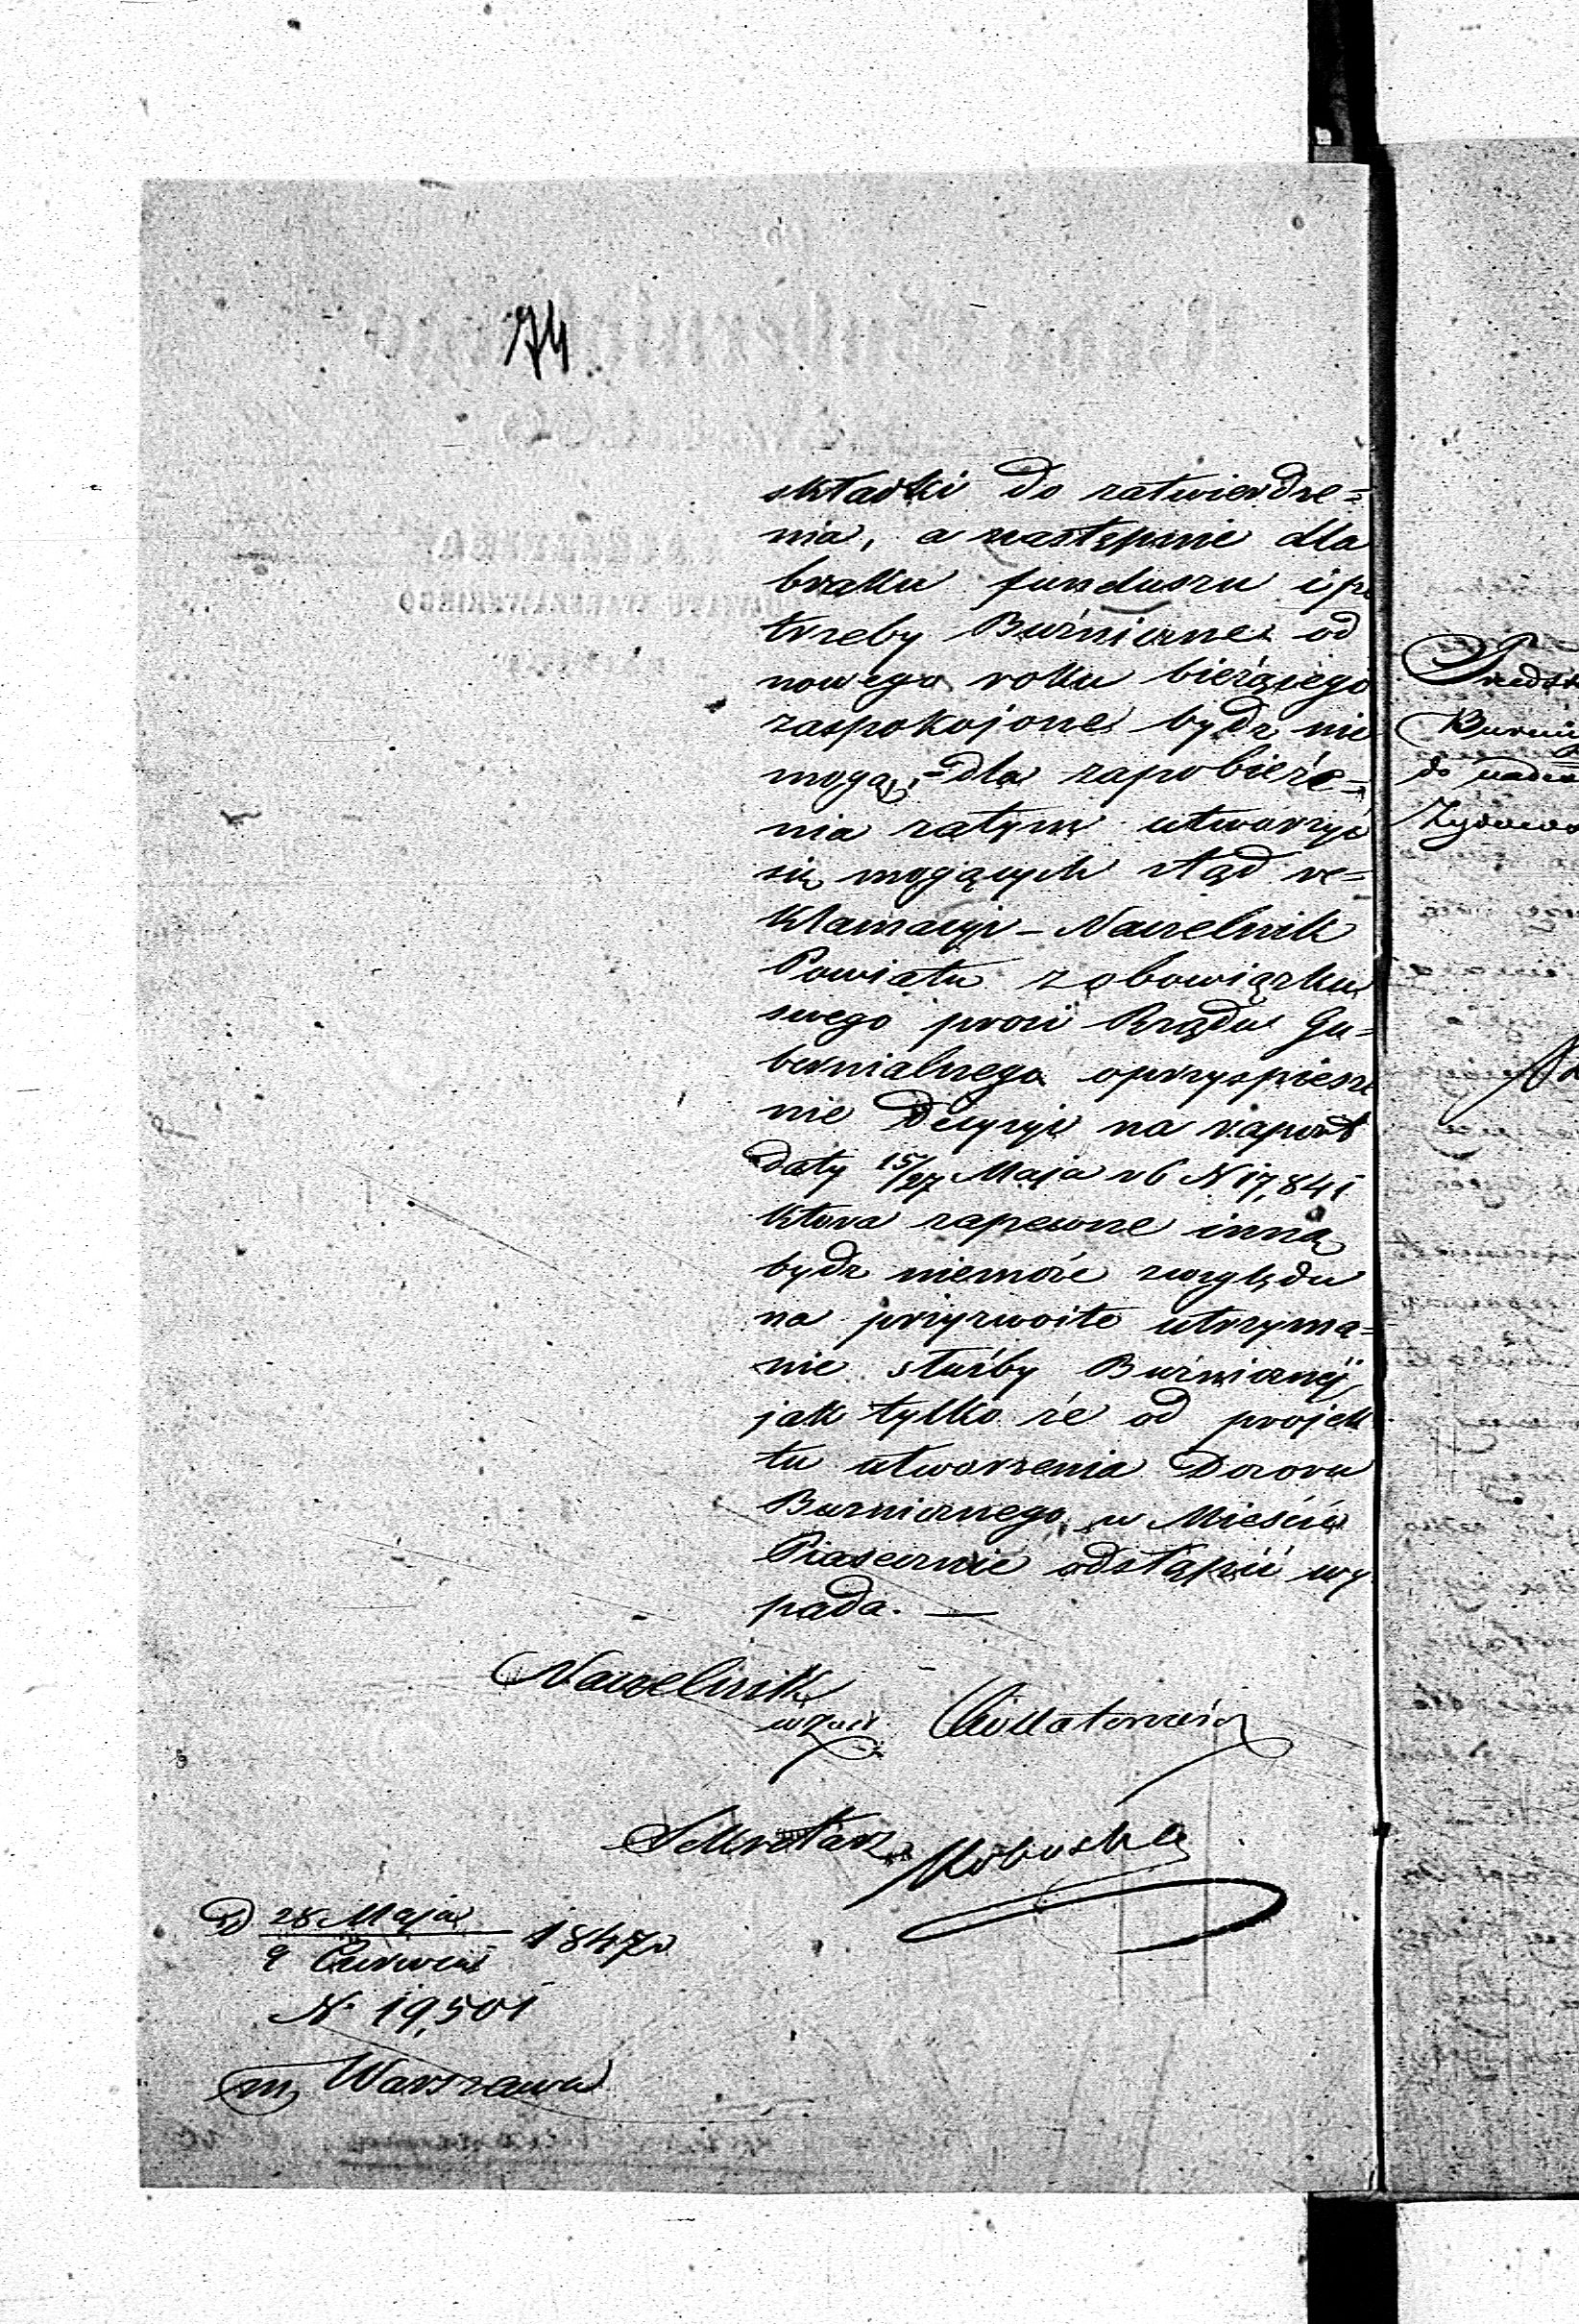 74
składki do zatwierdze=
nia, a następnie dla
braku funduszu i po
trzeby Bużniczne od
nowego roku bieżącego
zaspokojone bydz nie
mogą, - dla zapobieże=
nia zatym utworzyć
się mogących ztąd re=
klamacyi - Naczelnik
Powiatu z obowiązku
swego prosi Rządu Gu=
bernialnego oprzyspiesze
nie Decyzyi na raport
daty 15/27 Maja rb N 17,841
która zapewne inną
bydz niemoże zwzględu
na przyzwoite utrzyma=
nie służby Bużnicznej,
jak tylko że od projek
tu utworzenia Dozoru
Bużnicznego w Mieście
Piasecznie odstąpić wy
pada. —
Naczelnik
Sekretarz
D 28 Maja
9 Czerwca 1847 r
N. 19,501
m. Warszawa